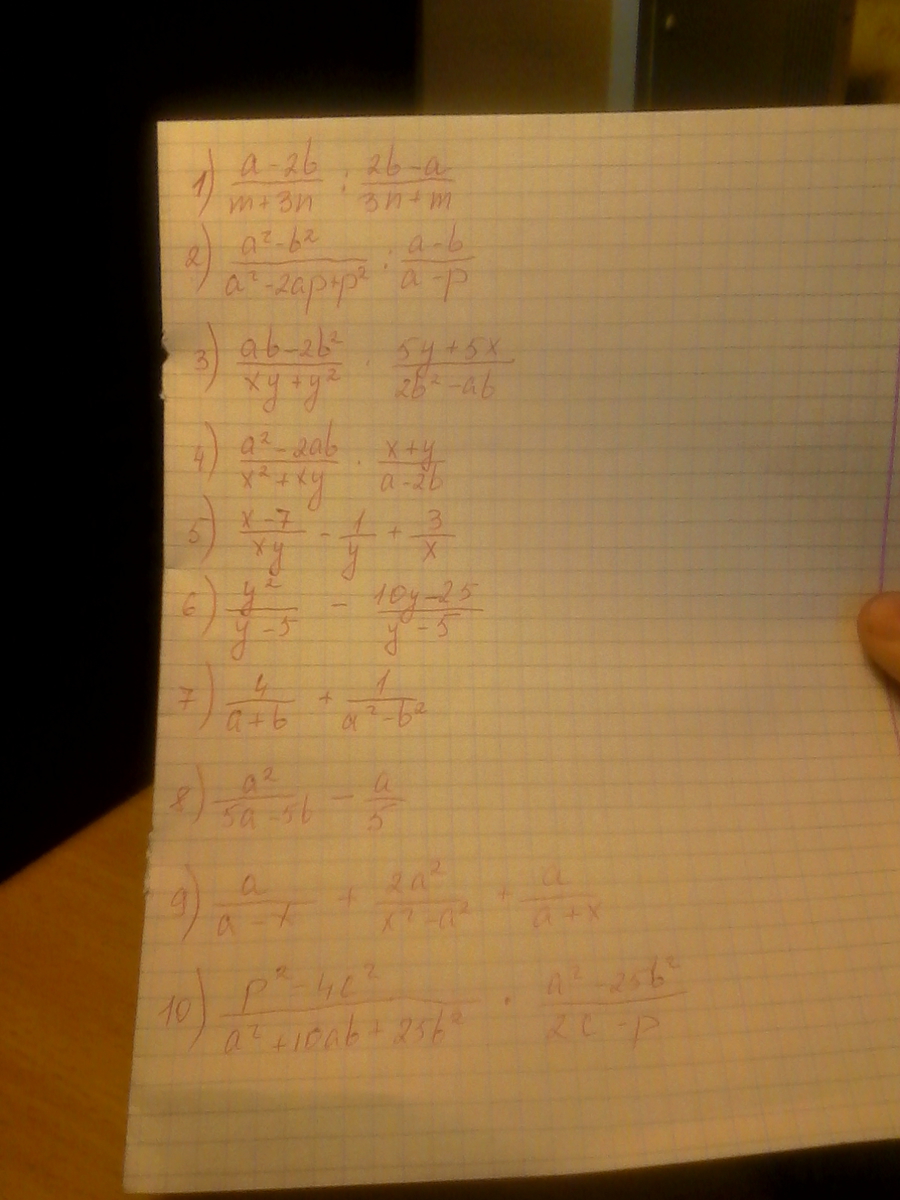 1) (a-2b)/(m+3n) : (2b-a)/(3n+m)
2) (a²-b²)/(a²-2ap+p²) : (a-b)/(a-p)
3) (ab-2b²)/(xy+y²) · (5y+5x)/(2b²-ab)
4) (a²-2ab)/(x²+xy) · (x+y)/(a-2b)
5) (x-7)/(xy) - 1/y + 3/x
6) y²/(y-5) - (10y-25)/(y-5)
7) 4/(a+b) + 1/(a²-b²)
8) a²/(5a-5b) - a/5
9) a/(a-x) + 2a²/(x²-a²) + a/(a+x)
10) (p²-4c²)/(a²+10ab+25b²) · (a²-25b²)/(2c-p)